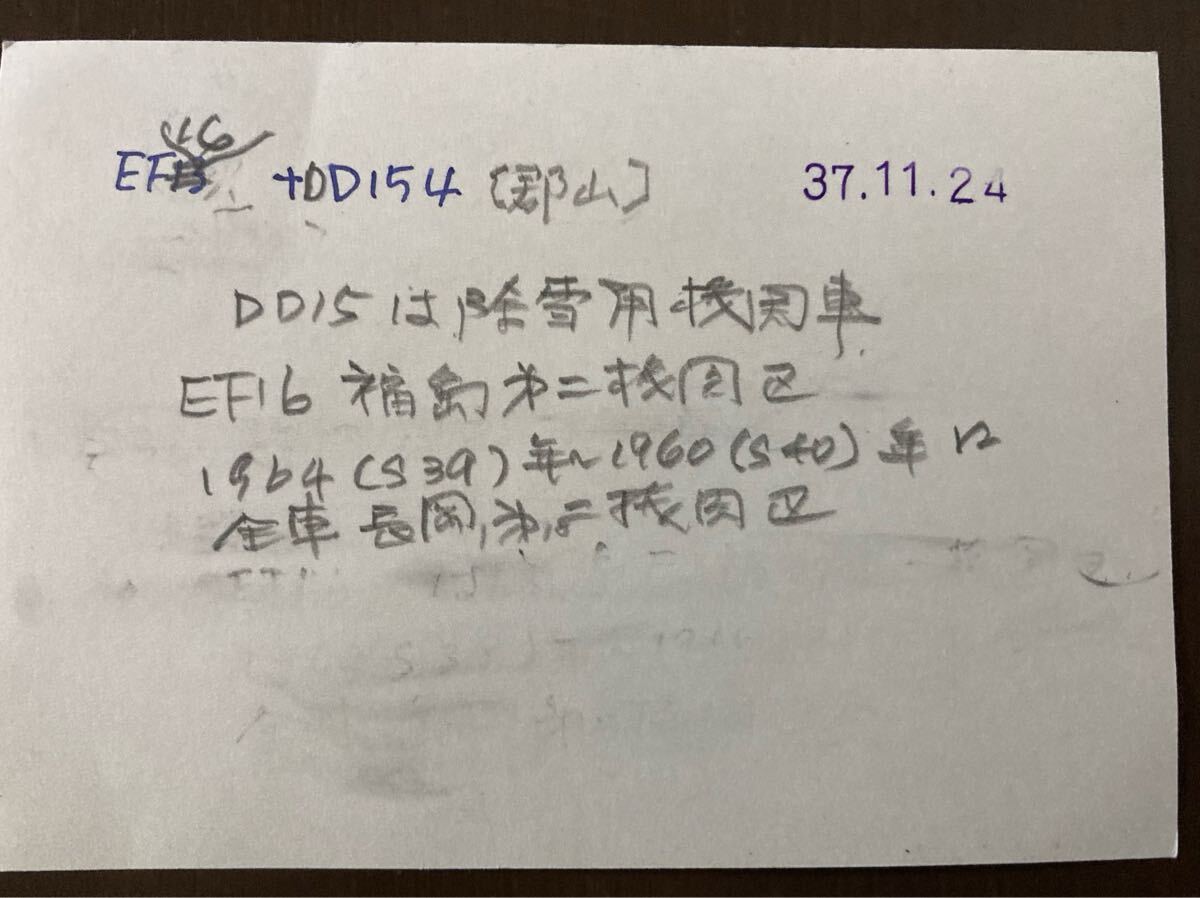 EF16 +DD154 [郡山] 37.11.24
DD15は除雪用機関車
EF16 福島第二機関区
1964(S39)年〜1960(S40)年に
全車長岡第二機関区